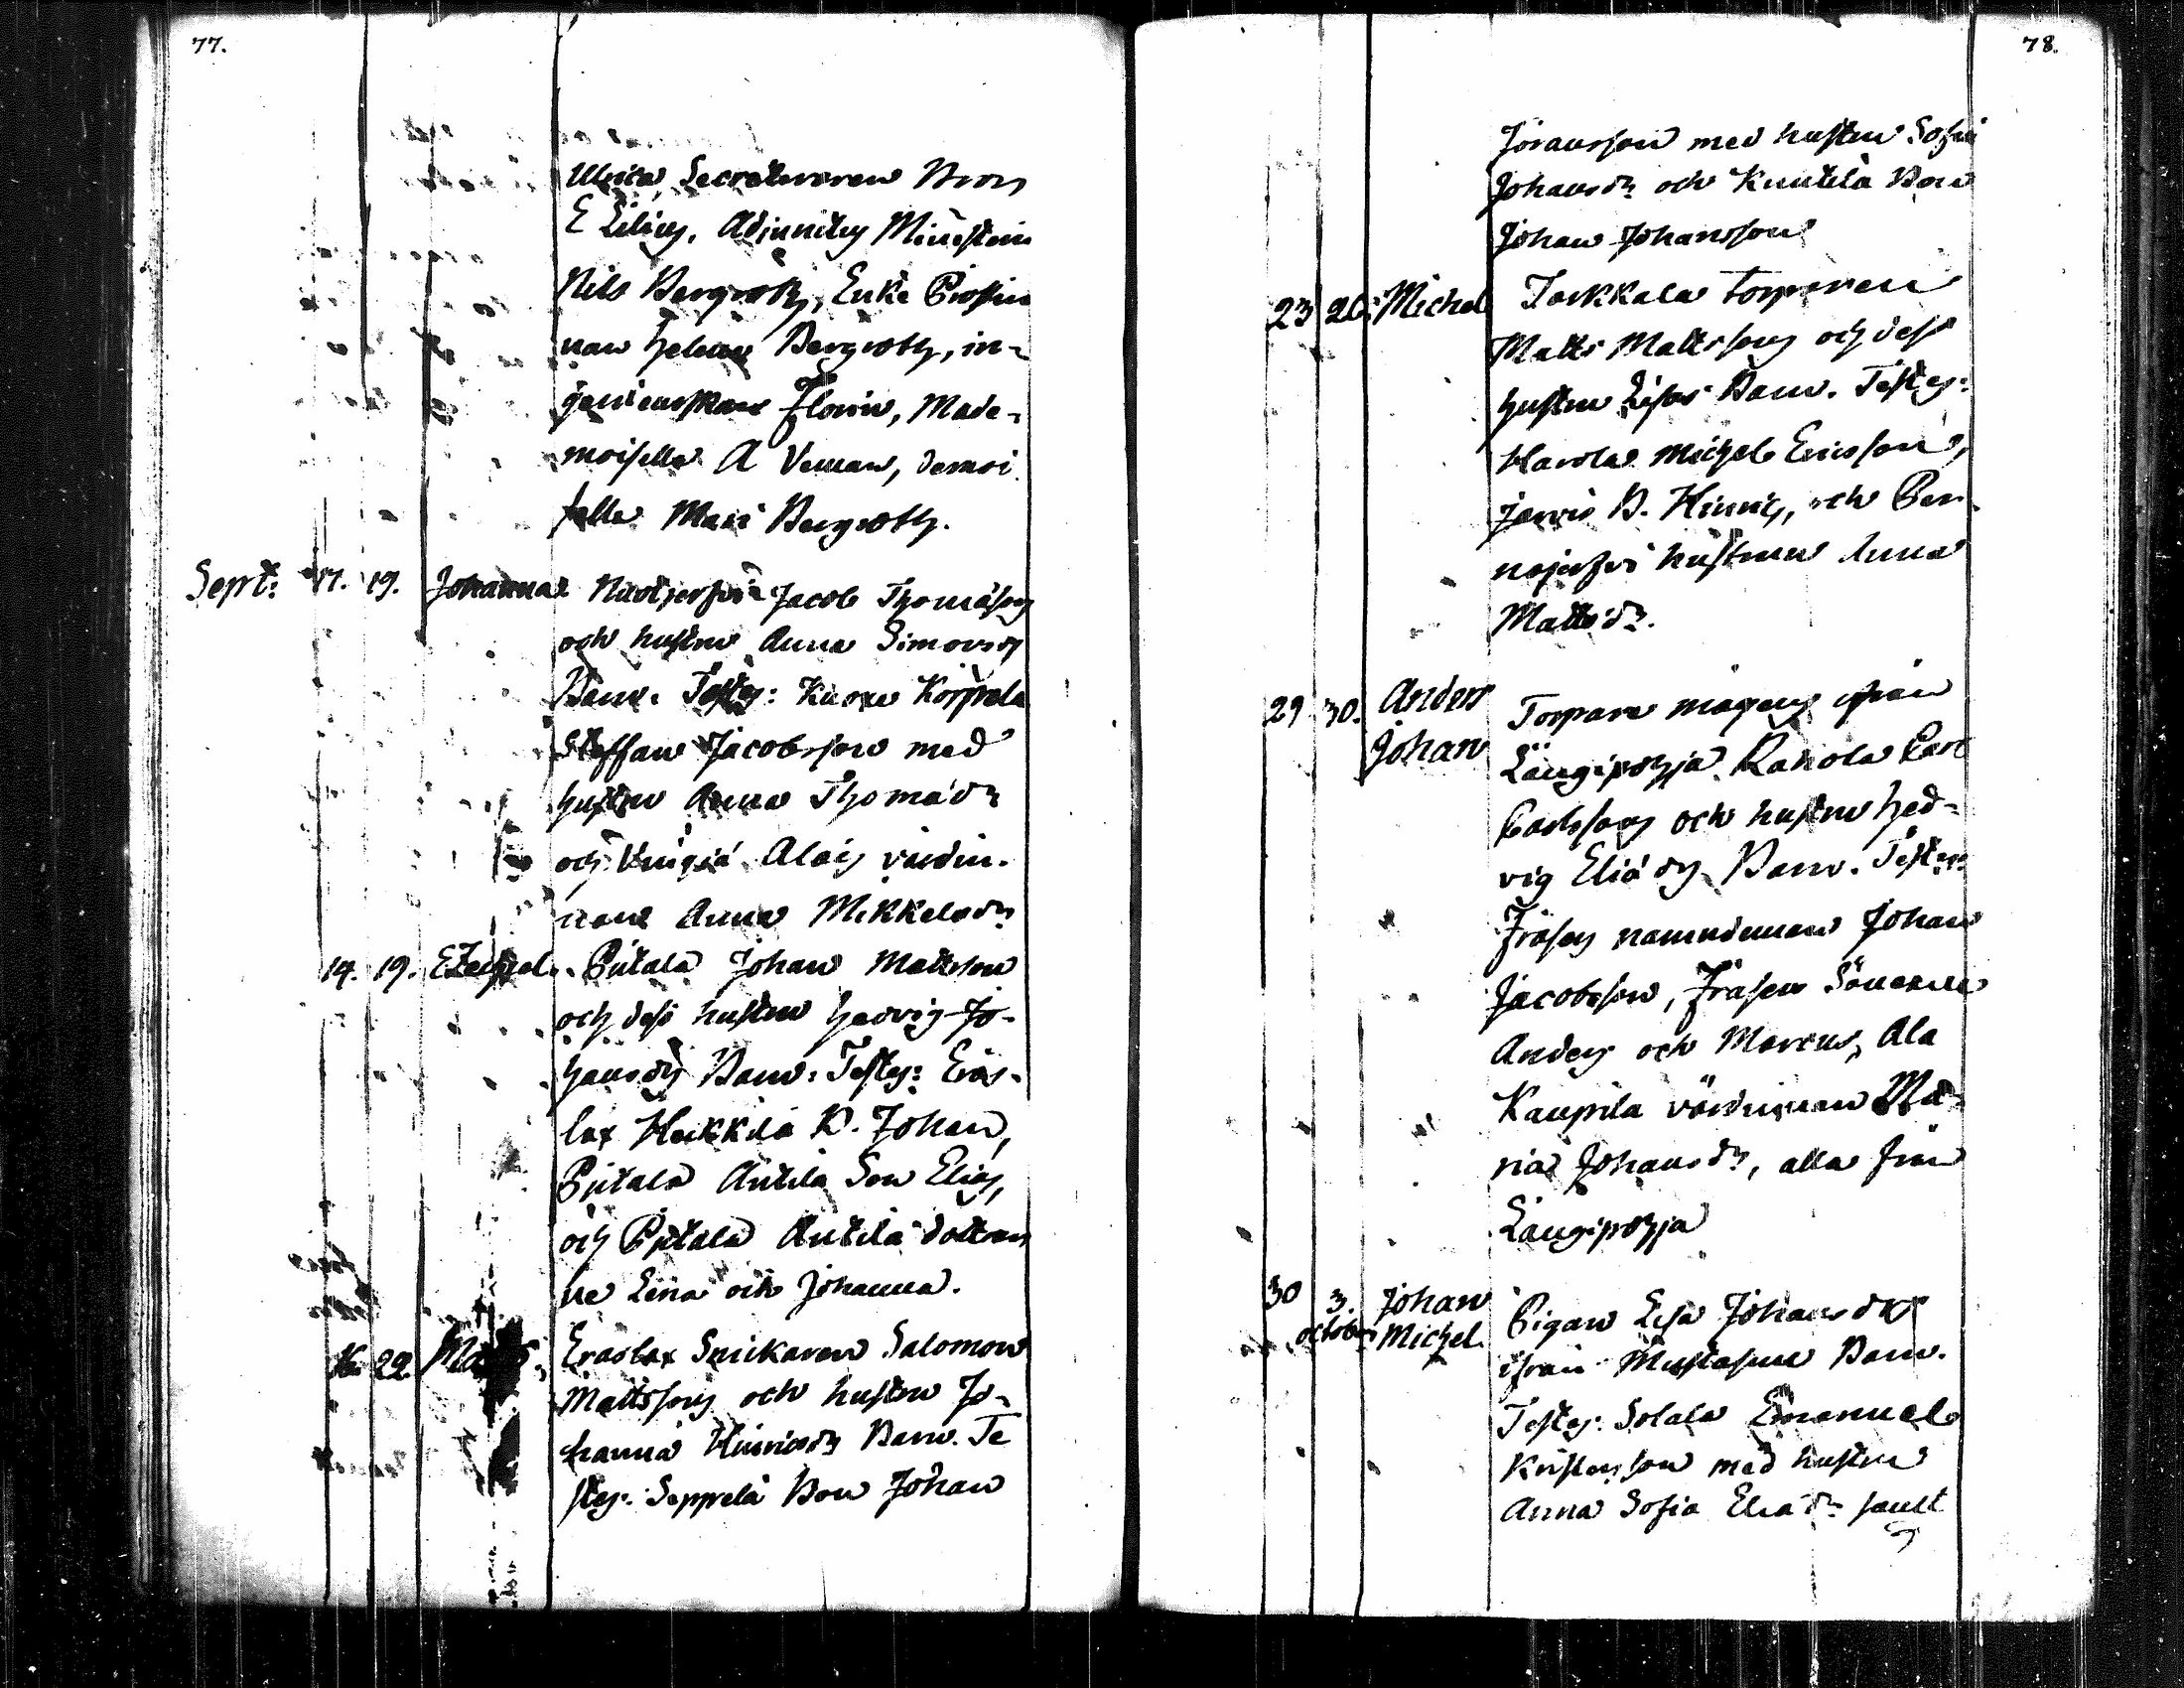 77.
Ulrica, Secreteraren Brors
E Lilius, Adjunctus Ministerii
Nils Bergroth, Enke Prostin
nan Helena Bergroth, in-
genieurskan Florin, Made-
moiselle A Veman, demoi
selle Mari Bergroth.
Sept: 17. 19. Johanna Jacob Thomasson
och hustru Anna Simonsdr
Barn. Testes: Korpela
Steffan Jacobsson med
hustru Anna Thomædr
och Alais värdin-
nan Anna Mikkelsdr
14. 19. Ezechiel. Pitala Johan Mattsson
och dess hustru Hedvig Jo-
hansdr Barn: Testes: Eräs-
lax Heikkilä B. Johan,
Pitala Anttila Son Elias,
och Pitala Anttila döttrar
ne Lena och Johanna.
22. Matts. Eräslax Snickaren Salomon
Mattsson och hustru Jo-
hanna Hinricsdr Barn. Te
stes: Seppelä Bon Johan
78.
Jöransson med hustru Sofia
Johansdr och Knutila Bon
Johan Johansson
23 26. Michel Torkkala torparen
Matts Mattsson och dess
hustru Lisas Barn. Testes:
Harola Michel Ericsson,
Järvis B. Hinric, och Per
hustrun Anna
Mattsdr.
29. 30. Anders
Johan
Torpare mågens ifrån
Längipohja Rahola Carl
Carlsson och hustru Hed-
vig Eliædr Barn. Testes:
Fräsens nämndeman Johan
Jacobsson, Fräsens Sönerne
Anders och Marcus, Ala
Kaupila värdinnan Ma-
ria Johansdr, alla från
Längipohja
30 3. october Johan
Michel.
Pigan Lisa Johansdrs
ifrån Barn.
Testes: Solala Emanuel
Kristersson med hustru
Anna Sofia Eliædr samt